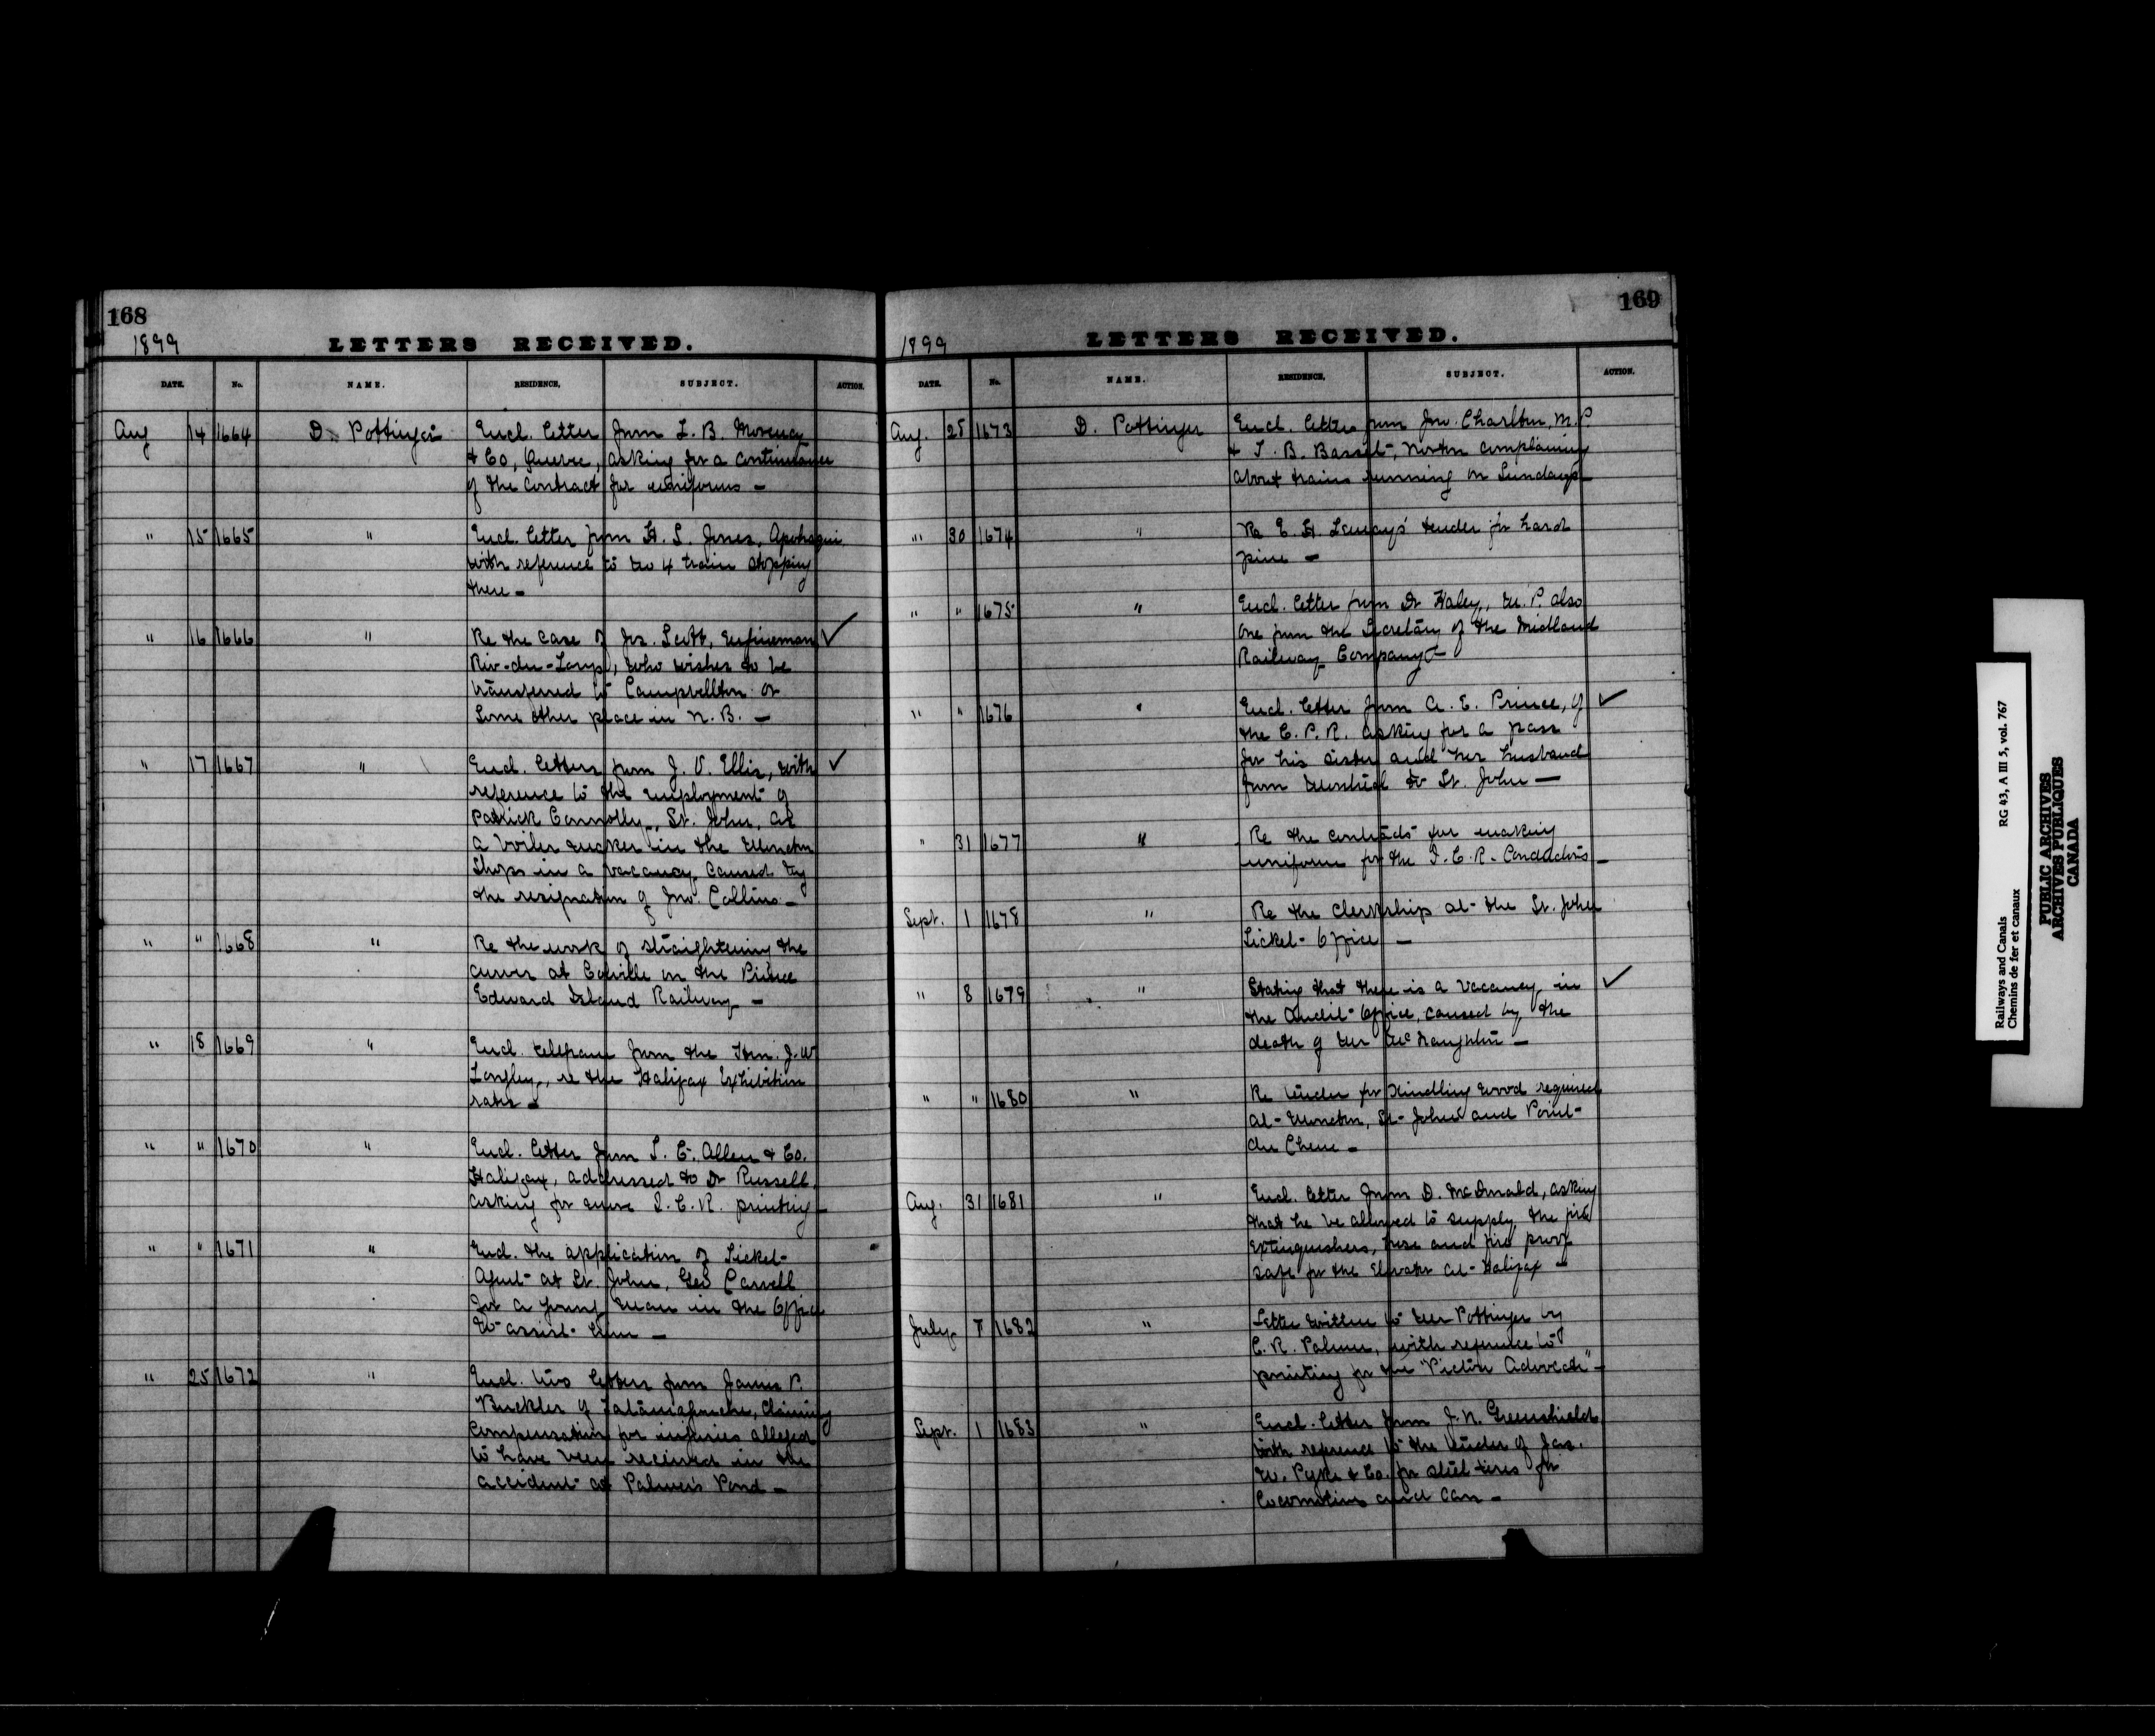 168
1899
LETTERS RECEIVED.
DATE. No. NAME. RESIDENCE. SUBJECT. ACTION.
Aug 14 1664 D. Pottinger Encl. letter from L. B. Morency
& Co, Quebec, asking for a continuance
of the contract for uniforms —
" 15 1665 " Encl. letter from H. S. Jones, Apohaqui
with reference to No 4 train stopping
there —
" 16 1666 " Re the case of Jos. Scott, Engineman ✓
Riv-du-Loup, who wishes to be
transferred to Campbellton or
some other place in N. B. —
" 17 1667 " Encl. letters from J. V. Ellis, with ✓
reference to the employment of
Patrick Connolly, St. John, as
a boiler maker in the Moncton
Shops in a vacancy caused by
the resignation of Jno. Collins —
" " 1668 " Re the work of straightening the
curves at Colville on the Prince
Edward Island Railway —
" 18 1669 " Encl. telegram from the Hon. J. W.
Longley, re the Halifax Exhibition
rates —
" " 1670 " Encl. letter from T. C. Allen & Co.
Halifax, addressed to Dr Russell,
asking for more I. C. R. printing —
" " 1671 " Encl. the application of Ticket
Agent at St. John, Geo Carvell
for a young man in the Office
to assist him —
" 25 1672 " Encl. two letters from James P.
Buckler of Tatamagouche, claiming
compensation for injuries alleged
to have been received in the
accident at Palmer's Pond —
169
1899
LETTERS RECEIVED.
DATE. No. NAME. RESIDENCE. SUBJECT. ACTION.
Aug. 25 1673 D. Pottinger Encl. letters from Jno. Charlton, M.P.
& T. B. Bassett, complaining
about trains running on Sundays —
" 30 1674 " Re E. H. tender for hard
pine —
" " 1675 " Encl. letter from Dr Haley, M. P. also
one from the Secretary of the Midland
Railway Company —
" " 1676 " Encl. letter from A. E. Prince, of ✓
the C. P. R. asking for a pass
for his sister and her husband
from Montreal to St. John —
" 31 1677 " Re the contracts for making
uniforms for the I. C. R. Conductors —
Sept. 1 1678 " Re the Clerkship at the St. John
Ticket Office —
" 8 1679 " Stating that there is a vacancy in ✓
the Audit Office, caused by the
death of Mr McNaughton —
" " 1680 " Re tender for kindling wood required
at Moncton, St. John and Point
du Chene —
Aug. 31 1681 " Encl. letter from D. McDonald, asking
that he be allowed to supply the fire
extinguishers, hose and fire proof
safe for the Elevator at Halifax —
July 7 1682 " Letter written to Mr Pottinger by
C. R. Palmer, with reference to
printing for the "Pictou Advocate" —
Sept. 1 1683 " Encl. letter from J. N. Greenshields
with reference to the tender of Jas.
W. Pyke & Co. for steel tires for
locomotives and cars —
Railways and Canals RG 43, A III 5, vol. 767
Chemins de fer et canaux
PUBLIC ARCHIVES
ARCHIVES PUBLIQUES
CANADA